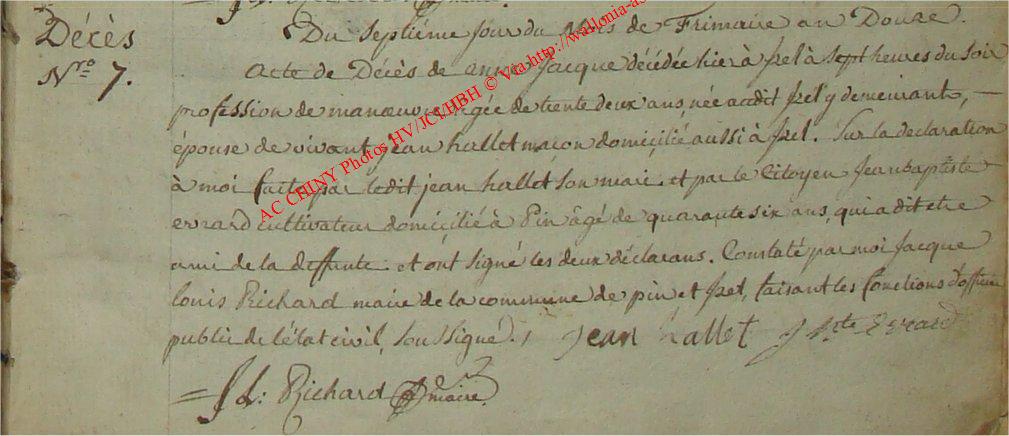 Décès
Nro 7.
Du Septième jour du Mois de Frimaire an Douze.
Acte de Décès de anne jacque décédée hier à Izel à sept heures du soir
profession de manœuvre, agée de trente deux ans, née audit Izel y demeurant,
épouse de vivant jean hallet maçon domicilié aussi à Izel. Sur la declaration
à moi faite par ledit jean hallet son mari et par le Citoyen Jean baptiste
evrard cultivateur domicilié à Pin âgé de quarante six ans, qui a dit etre
ami de la deffunte et ont signé les deux déclarans. Constaté par moi Jacque
louis Richard maire de la commune de pin et Izel, faisant les fonctions d'officier
public de l'état civil, soussigné.
jean hallet J Bte Evrard
J L: Richard maire
AC CHINY Photos HV/JCl/HBH © Via http://wallonia-as